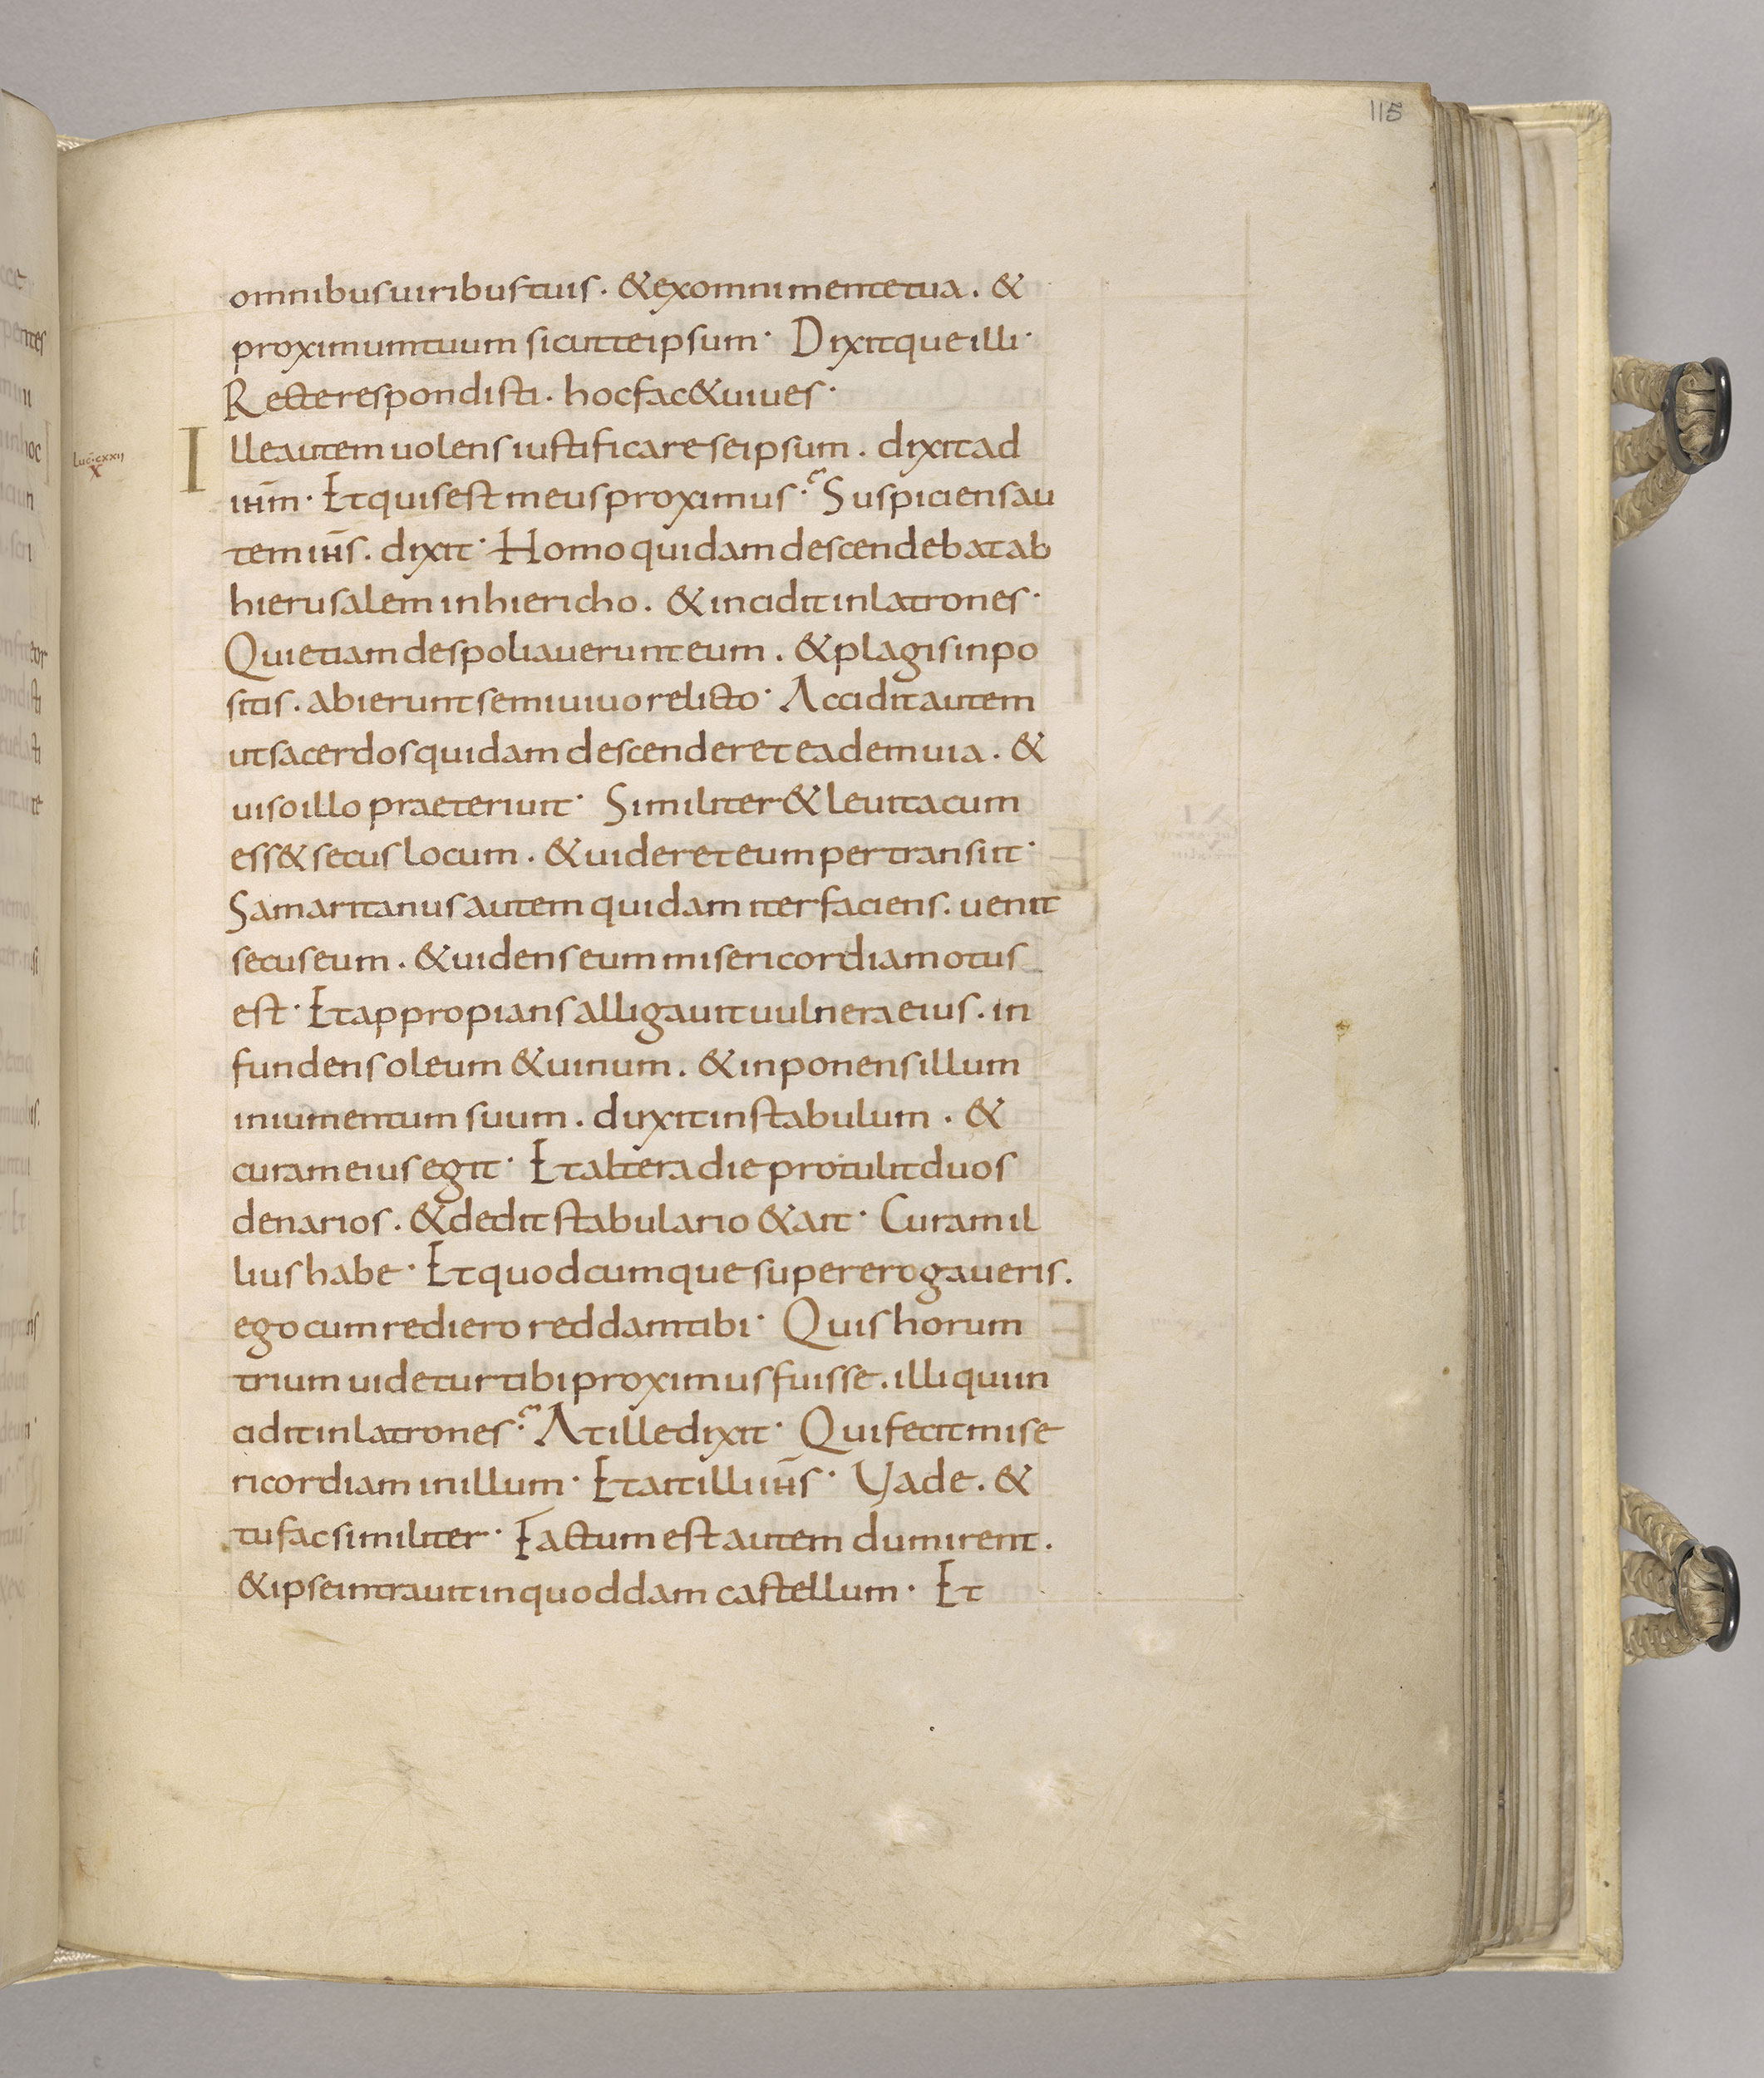 115
omnibus uiribus tuis · & ex omni mente tua . &
proximum tuum sicut te ipsum · Dixitque illi ·
Recte respondisti . hoc fac & uiues ·
luc · cxxii
x
Ille autem uolens iustificare se ipsum . dixit ad
ihm̄ · Et quis est meus proximus ·? Suspiciens au
tem ihs̄ . dixit · Homo quidam descendebat ab
hierusalem in hiericho . & incidit in latrones ·
Qui etiam despoliauerunt eum . & plagis inpo
sitis . abierunt semiuiuo relicto · Accidit autem
ut sacerdos quidam descenderet eadem uia . &
uiso illo praeteriuit · Similiter & leuita cum
ess& secus locum . & uideret eum pertransiit ·
Samaritanus autem quidam iter faciens . uenit
secus eum . & uidens eum misericordia motus
est · Et appropians alligauit uulnera eius . in
fundens oleum & uinum . & inponens illum
in iumentum suum . duxit in stabulum . &
curam eius egit · Et altera die protulit duos
denarios . & dedit stabulario & ait · Curam il
lius habe · Et quodcumque supererogaueris .
ego cum rediero reddam tibi · Quis horum
trium uidetur tibi proximus fuisse . illi qui in
cidit in latrones ·? At ille dixit · Qui fecit mise
ricordiam in illum · Et ait illi ihs̄ · Vade . &
tu fac similiter · Factum est autem dum irent .
& ipse intrauit in quoddam castellum · Et